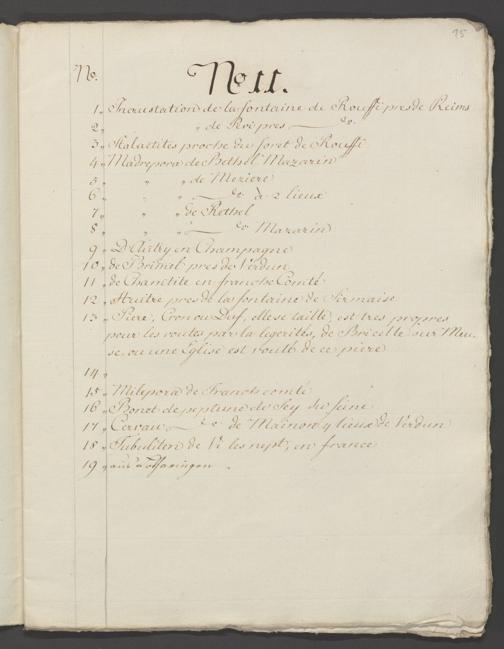 95
No. No 11.
1. Incrustation de la fontaine de Rouffi pres de Reims
2. " de Peri pres — do.
3. Stalactites proche du foret de Rouffi
4. Madrepora de Bethel Mazarin
5. " " de Meziere
6. " " — do à 2 lieux
7. " " de Rethel
8. " " — do Mazarin
9. D'Autry en Champagne
10. de Brinel pres de Verdun
11. de Chanctite en franche Comté
12. Huitre pres de la fontaine de Sermaise
13. Piere, Cron ou Duf, elle se taille, est tres propres
pour les voutes par la legerités, de Bricelle sur Meu-
se, ou une Eglise est voute de ce piere
14.
15. Milepora de Franch comté
16. Bonet de neptune de Sey sur seine
17. Cervau — do de Mainon 4 lieux de Verdun
18. Tubuliten de Ve les nept, en france
19. aus